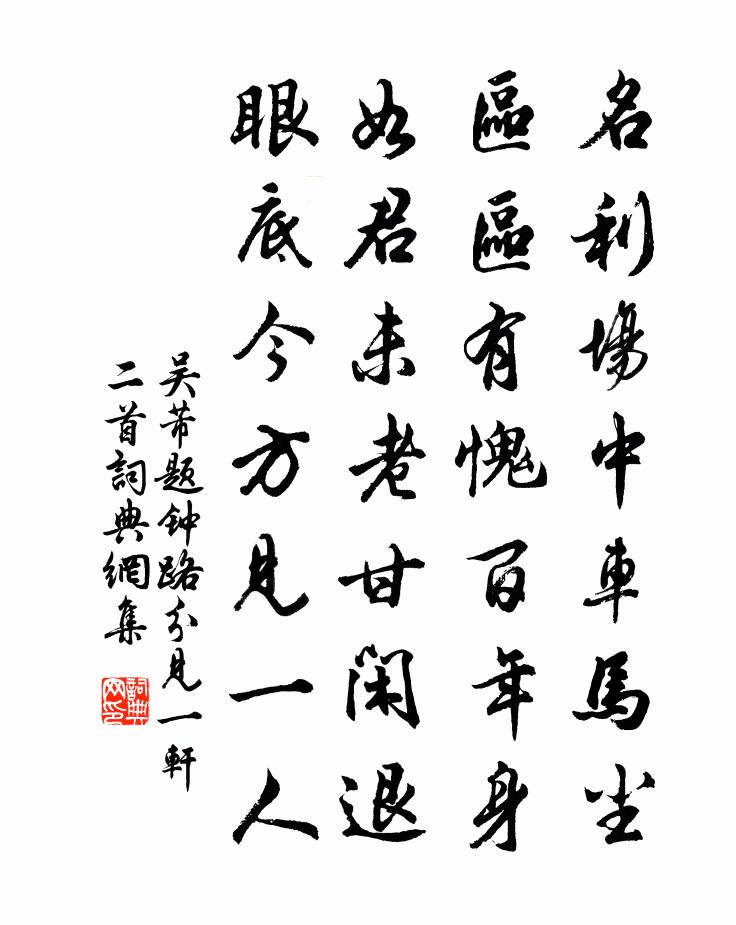 名利場中車馬尘
區區有愧百年身
如君未老甘閑退
眼底今方見一人
吴芾题钟路分見一軒
二首詞典網集
詞典
网印